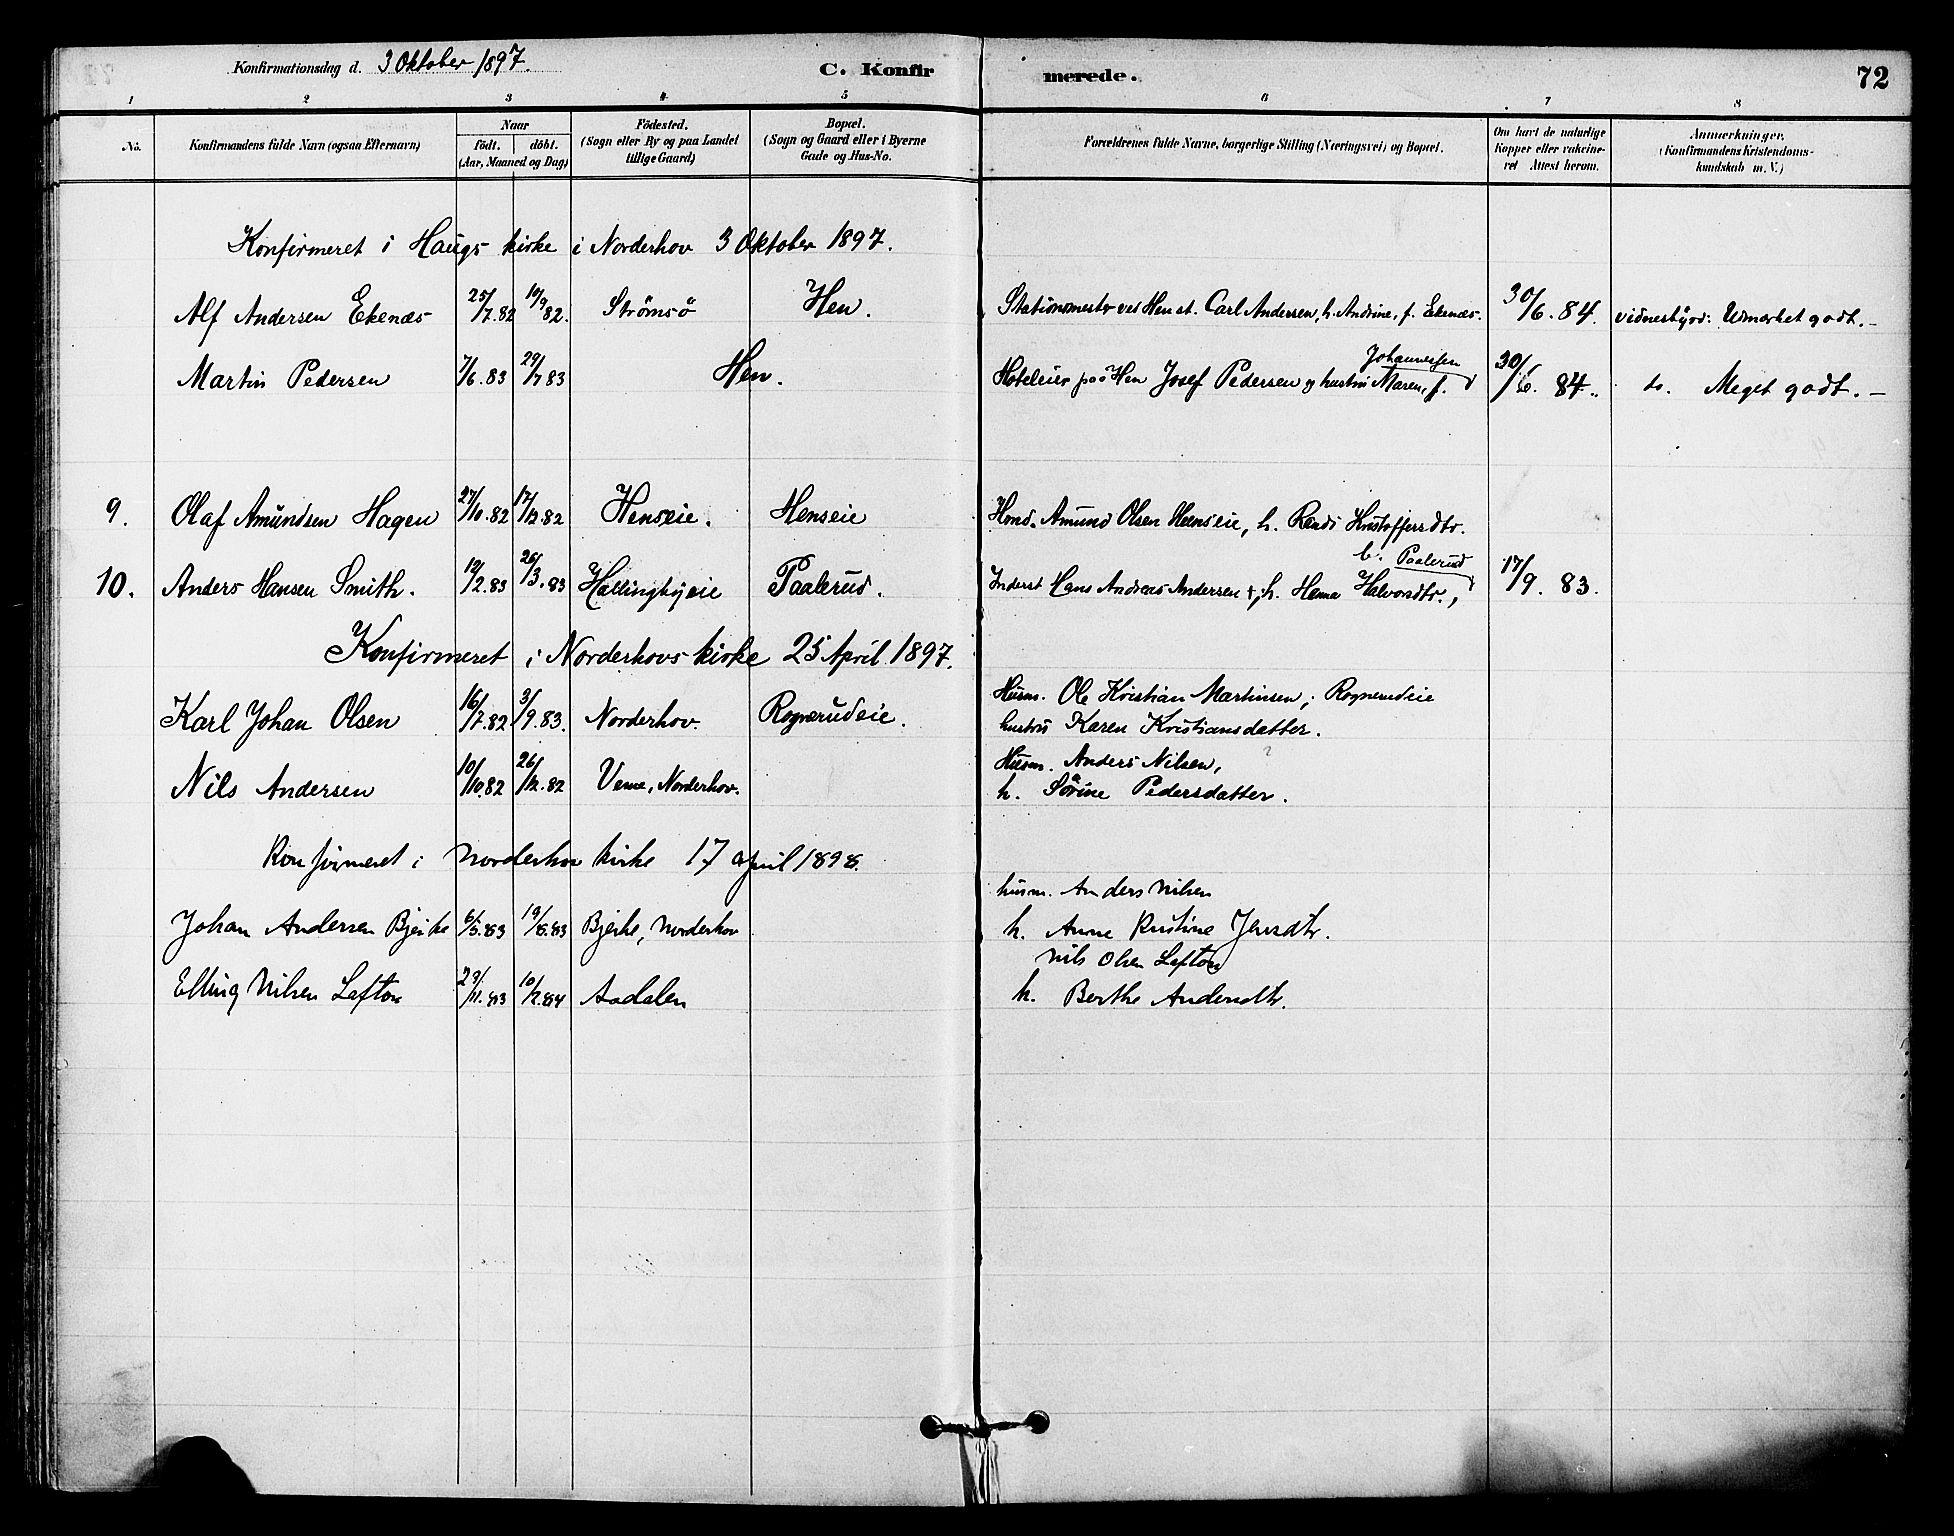 Konfirmationsdag d. 3 Oktober 1897. C. Konfir merede. 72
1 2 3 4 5 6 7 8
No. Konfirmandens fulde Navn (ogsaa Efternavn) Naar födt. döbt. (Aar, Maaned og Dag) Födested. (Sogn eller By og paa Landet tillige Gaard) Bopæl. (Sogn og Gaard eller i Byerne Gade og Hus-No. Forældrenes fulde Navne, borgerlige Stilling (Næringsvei) og Bopæl. Om havt de naturlige Kopper eller vakcineret Attest herom. Anmærkninger. (Konfirmandens Kristendomskundskab m. V.)
Konfirmeret i Haugs kirke i Norderhov 3 Oktober 1897.
Alf Andersen Ekenæs 25/7.82 10/9 82. Strömsö Hen. Stationsmester ved Hen st. Carl Andersen, h. Andrine, f. Ekenæs. 30/6. 84. vidnesbyrd: Udmærket godt. –
Johannessen
Martin Pedersen 7/6.83 29/7 83 Hen. Hoteleier paa Hen Josef Pedersen og hustru Maren, f. 30/6. 84. do. Meget godt. –
9. Olaf Amundsen Hagen 27/10.82 17/12.82 Henseie. Henseie Amund Olsen Henseie, h. Randi Kristoffersdtr.
b. Paalerud
10. Anders Hansen Smith. 12/2.83 26/3.83 Hallingbyeie Paalerud. Inderst Hans Andreas Andersen &, h. Halvorsdtr., 17/9. 83.
Konfirmeret i Norderhovs kirke 25 April 1897.
Husm. Ole Kristian Martinsen, Rognerudeie
Karl Johan Olsen 16/7.82 3/9.83. Norderhov. Rognerudeie. hustru Karen Kristiansdatter.
Husm. Anders Nilsen,
Nils Andersen 10/10.82 26/12.82 Veme, Norderhov. h. Sörine Pedersdatter.
Konfirmeret i Norderhov kirke 17 april 1898.
husm. Anders Nilsen
Johan Andersen Bjerke 6/5.83 19/8.83 Bjerke, Norderhov h. Anne Kristine Jensdtr.
Nils Olsen Lafton
Elling Nilsen Lafton 29/11.83 10/2.84 Aadalen h. Berthe Andersdtr.